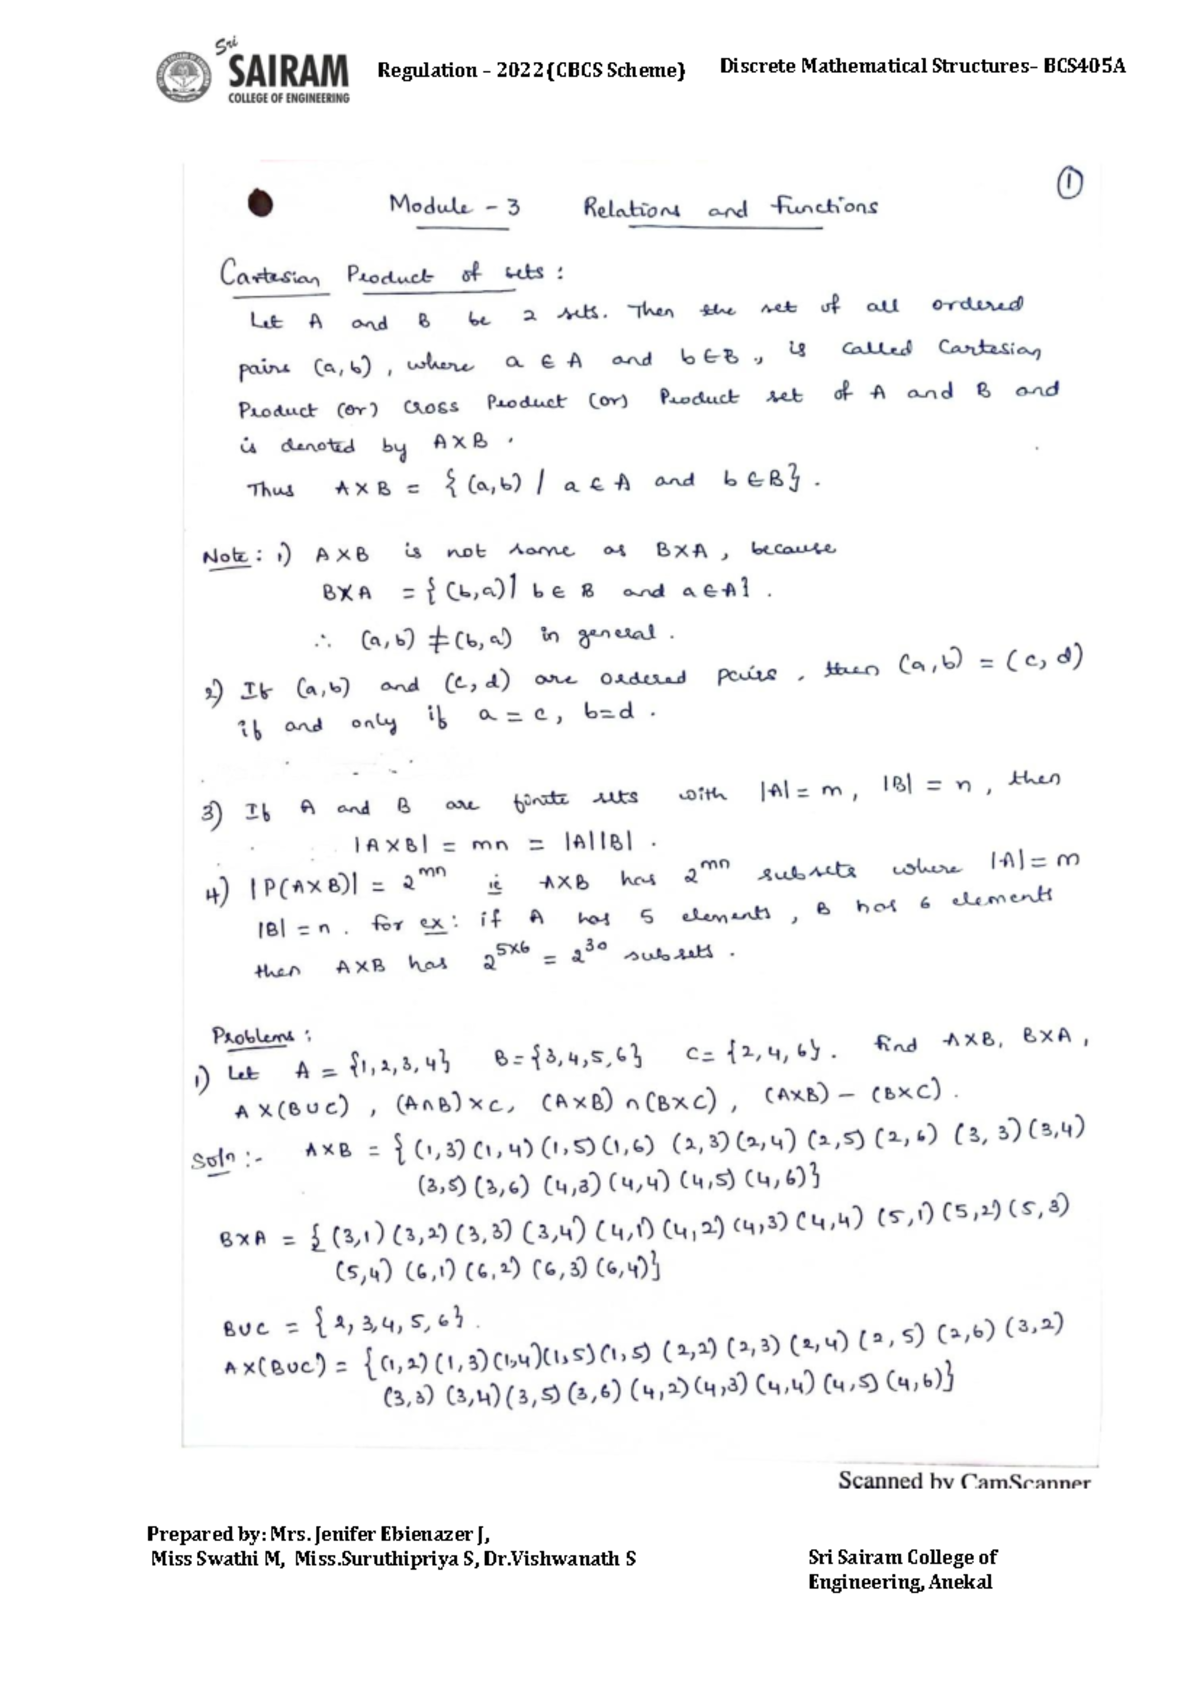 Sri
SAIRAM
COLLEGE OF ENGINEERING
Regulation – 2022{CBCS Scheme}
Discrete Mathematical Structures– BCS405A
1
Module - 3 Relations and functions
Cartesian Product of sets :
Let A and B be 2 sets. Then the set of all ordered
pairs (a,b), where a ∈ A and b∈B, is called Cartesian
Product (or) cross Product (or) Product set of A and B and
is denoted by A×B .
Thus A×B = {(a,b) / a ∈ A and b ∈B}.
Note : 1) A×B is not same as B×A, because
B×A = {(b,a)| b ∈ B and a∈A}.
∴ (a,b) ≠ (b,a) in general.
2) If (a,b) and (c,d) are ordered pairs, then (a,b) = (c,d)
if and only if a = c, b=d .
3) If A and B are finite sets with |A|= m, |B| = n, then
|A×B| = mn = |A||B| .
4) |P(A×B)| = 2^mn ie A×B has 2^mn subsets where |A|= m
|B|= n. for ex: if A has 5 elements, B has 6 elements
then A×B has 2^5×6 = 2^30 subsets.
Problems :
1) Let A = {1,2,3,4} B={3,4,5,6} C= {2,4,6}. find A×B, B×A,
A×(B∪C), (A∩B)×C, (A×B)∩(B×C), (A×B) – (B×C).
Soln :- A×B = {(1,3)(1,4)(1,5)(1,6) (2,3)(2,4)(2,5)(2,6) (3,3)(3,4)
(3,5)(3,6)(4,3)(4,4)(4,5)(4,6)}
B×A = {(3,1)(3,2)(3,3)(3,4)(4,1)(4,2)(4,3)(4,4)(5,1)(5,2)(5,3)
(5,4)(6,1)(6,2)(6,3)(6,4)}
B∪C = {2,3,4,5,6}.
A×(B∪C) = {(1,2)(1,3)(1,4)(1,5)(1,5)(2,2)(2,3)(2,4)(2,5)(2,6)(3,2)
(3,3)(3,4)(3,5)(3,6)(4,2)(4,3)(4,4)(4,5)(4,6)}
Scanned by CamScanner
Prepared by: Mrs. Jenifer Ebienazer J,
Miss Swathi M, Miss.Suruthipriya S, Dr.Vishwanath S
Sri Sairam College of
Engineering, Anekal